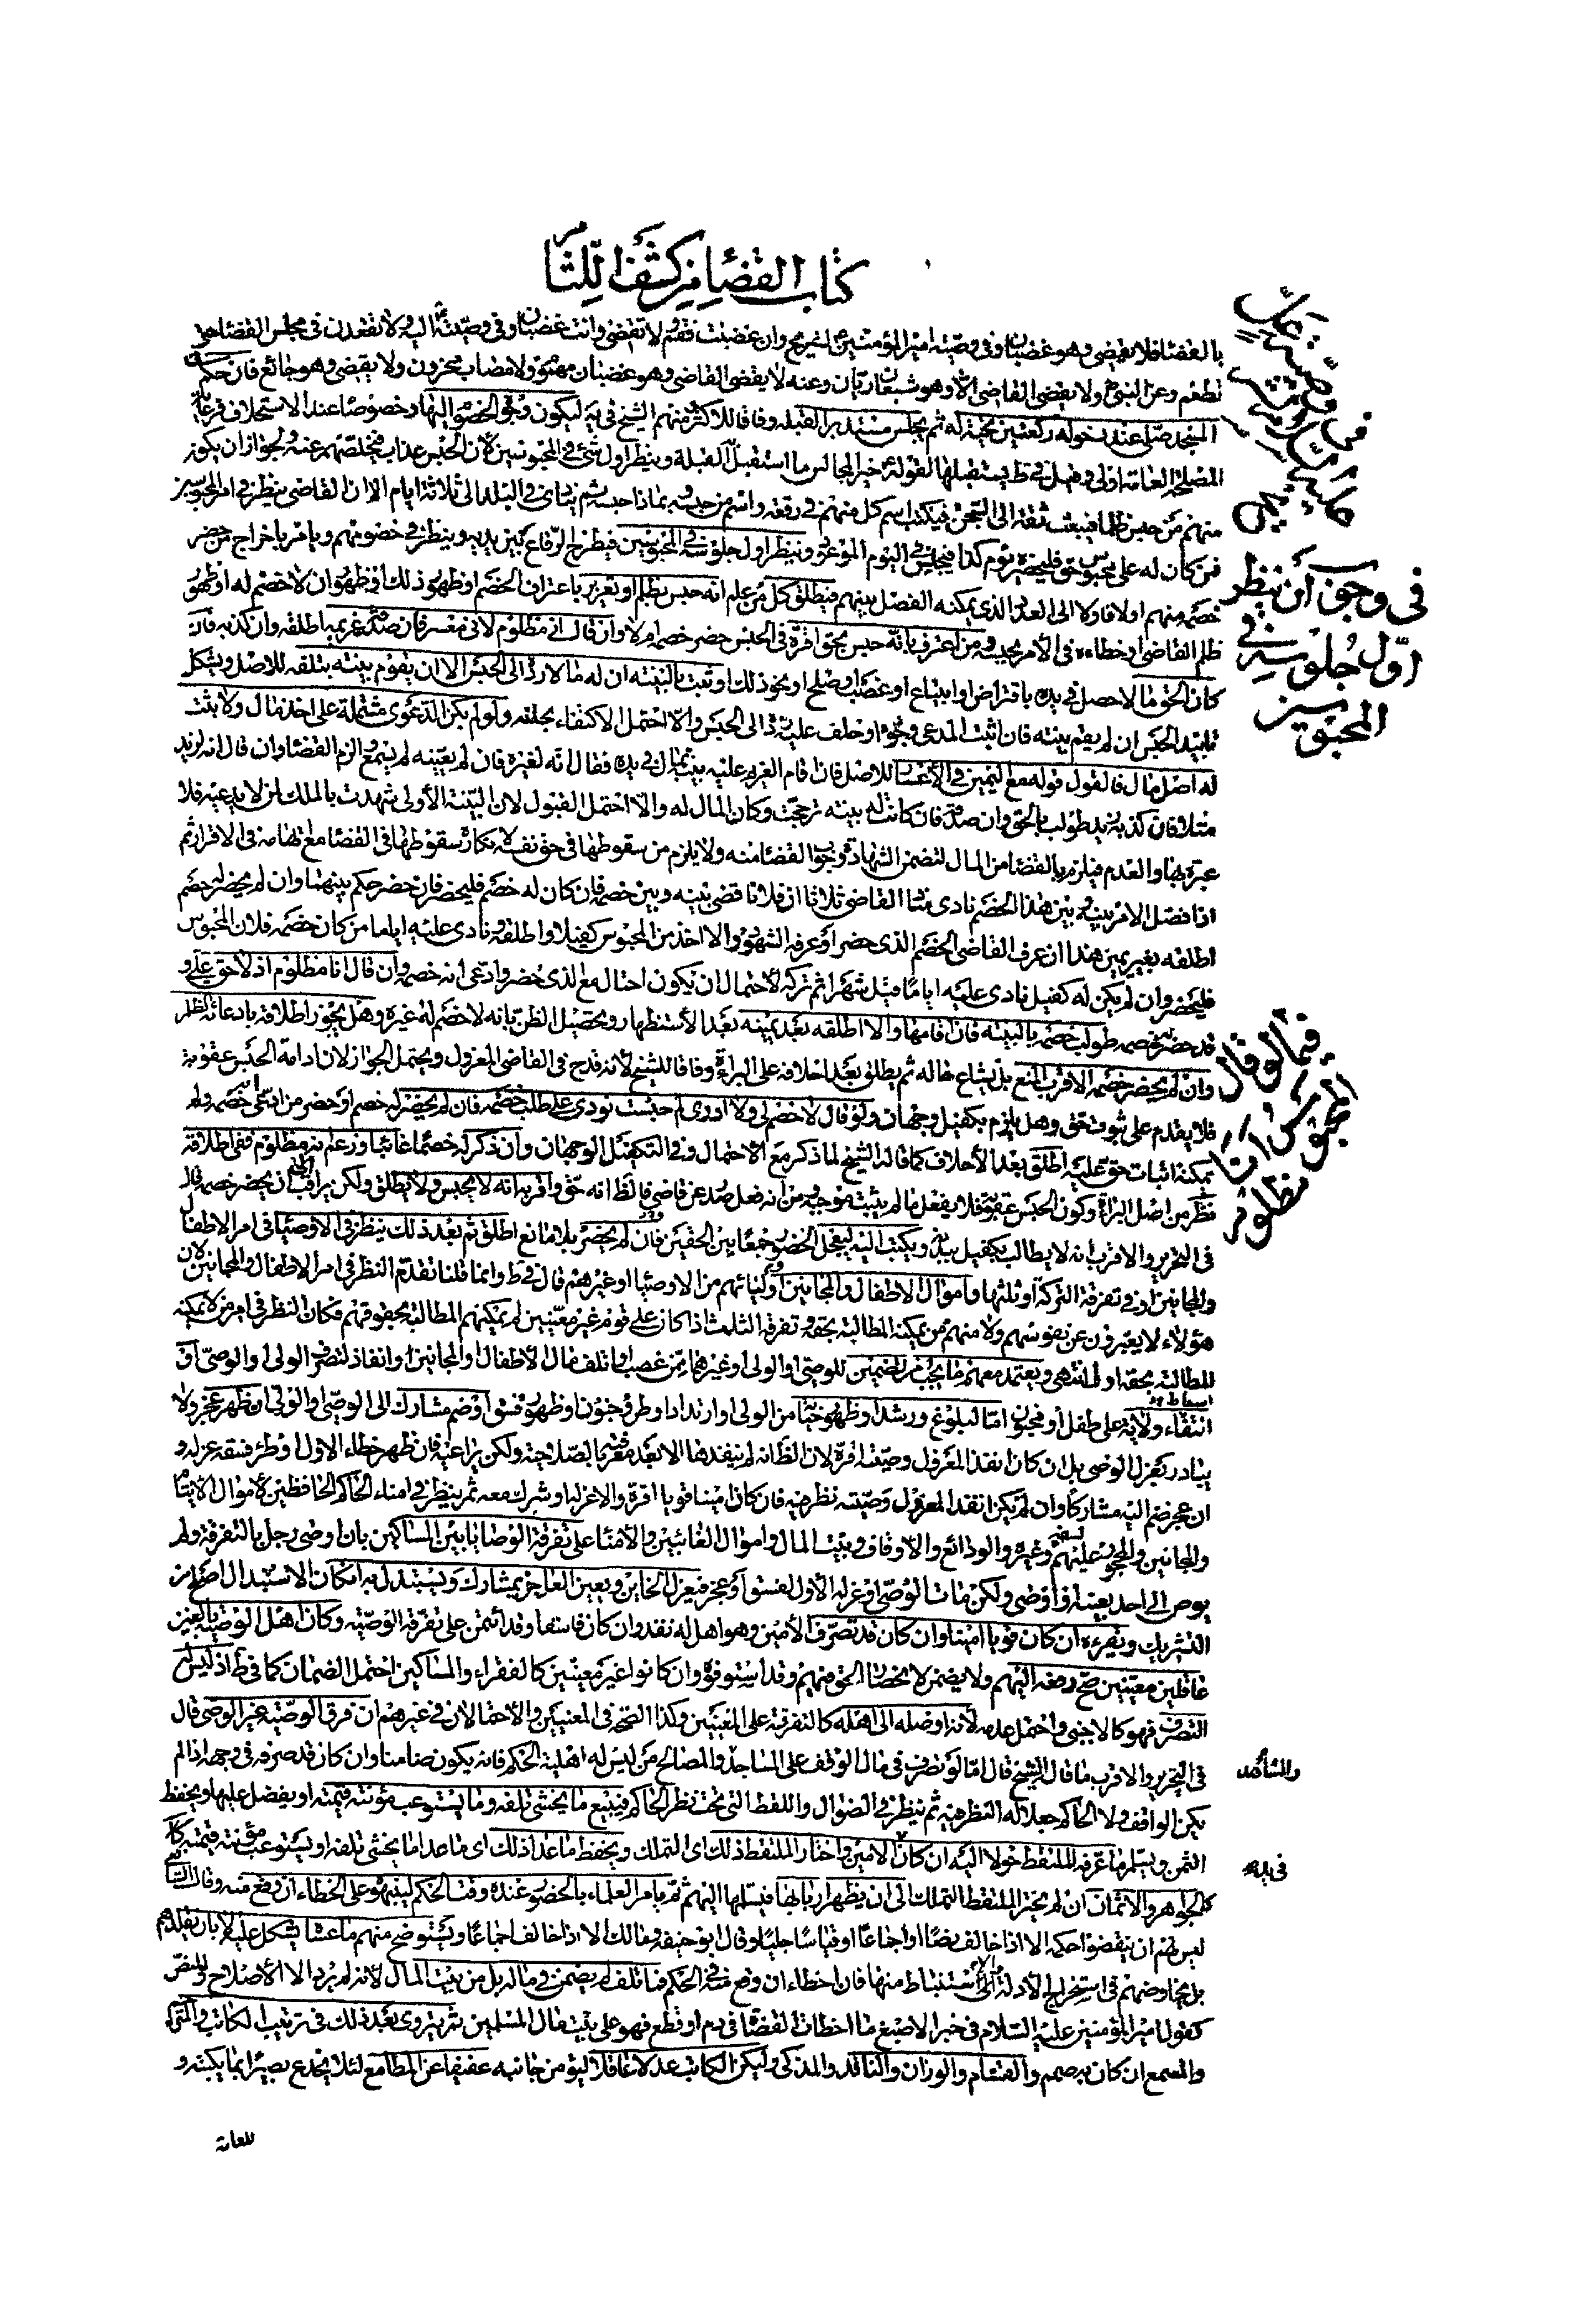 كتاب القضاء من كشف اللثام
بالقضاء فلا يقضي وهو غضبان وفي وصيته امير المؤمنين لشريح وان غضبت فقم ولا تقضي وانت غضبان وفي وصيته اليه ولا تقعدن في مجلس القضاء حتى
تطعم وعن النبي ولا يقضي القاضي الا وهو شبعان ريان وعنه لا يقضى القاضي وهو غضبان مهموم ولا مصاب محزون ولا يقضي وهو جائع فان حكم في
المسجد صلى عند دخوله ركعتين تحية له ثم يجلس مستدبر القبلة وفاقا للاكثر ومنهم الشيخ في يه ليكون وجوه الخصوم اليها وخصوصا عند الاستحلاف فرعاية
المصلحة العامة اولى وقيل في ط يستقبلها لقوله خير المجالس ما استقبل القبلة وينظر اول شئ في المحبوسين لان الحبس عذاب فيخلصهم عنه ولجواز ان يكون
منهم من حبس ظلما فيبعث ثقة الى السجن فيكتب اسم كل منهم في رقعة واسم من حبسه وبماذا حبسه ثم ينادى في البلد الى ثلاثة ايام الا ان القاضي ينظر في امر المحبوسين
فمن كان له على محبوس حق فليحضر يوم كذا فيجلس في اليوم الموعود وينظر اول جلوسه في المحبوسين فيطرح الرقاع بين يديه وينظر في خصومتهم ويامر باخراج من حضر
خصمه منهم اولا فاولا الى العدد الذي يمكنه الفصل بينهم فيطلق كل من علم انه حبس بظلم او تعزير باعتراف الخصم او ظهور ذلك او ظهور ان لا خصم له او ظهور
ظلم القاضي او خطاءه في الامر بحبسه ومن اعترف بانه حبس بحق اقره في الحبس حضر خصمه ام لا وان قال اني مظلوم لاني معسر فان صدقه غريمه اطلقه وان كذبه فان
كان الحق مالا حصل في يده باقتراض او ابتياع او غصب او صلح او نحو ذلك او ثبت بالبينة ان له مالا رد الى الحبس الا ان يقوم بينة بتلفه للاصل ويشكل
تابيد الحبس ان لم يقم بينة فان اثبت المدعي وجوده او حلف عليه رد الى الحبس والا احتمل الاكتفاء بحلفه ولو لم يكن الدعوى مشتملة على اخذ مال ولا ثبت
له اصل مال فالقول قوله مع اليمين في الاعسار للاصل فان اقام الغريم عليه بينة بمال في يده فقال انه لغيره فان لم يعينه لم يسمع والزم القضاء وان قال انه لزيد
مثلا فان كذبه زيد طولب بالحق وان صدقه فان كانت له بينة ترجحت وكان المال له والا احتمل القبول لان البينة الاولى شهدت بالملك لمن لا يدعيه فلا
عبرة بها والعدم فيلزم بالقضاء من المال لتضمن الشهادة وجوب القضاء منه ولا يلزم من سقوطها في حق نفسه لانكاره سقوطها في القضاء مع اتهامه في الاقرار ثم
اذا فصل الامر بينه وبين هذا الخصم نادى منادي القاضي ثلاثا ان فلانا قضي بينه وبين خصمه فان كان له خصم فليحضر فان حضر حكم بينهما وان لم يحضر له خصم
اطلقه بغير يمين هذا ان عرف القاضي الخصم الذى حضر او عرفه الشهود والا اخذ من المحبوس كفيلا واطلقه ونادى عليه اياما من كان خصمه فلان المحبوس
فليحضر وان لم يكن له كفيل نادى عليه اياما قيل شهرا ثم تركه لاحتمال ان يكون احتال مع الذى حضر وادعى انه خصمه وان قال انا مظلوم اذ لا حق علي و
قد حضر خصمه طولب خصمه بالبينة فان اقامها والا اطلقه بعد يمينه بعد الاستظهار وتحصيل الظن بانه لا خصم له غيره وهل يجوز اطلاقه بادعائه الظلم
وان لم يحضر خصمه الاقرب المنع بل يشاع حاله ثم يطلق بعد احلافه على البراءة وفاقا للشيخ لانه قدح في القاضي المعزول ويحتمل الجواز لان ادامة الحبس عقوبة
فلا يقدم على ثبوت حق وهل يلزم بكفيل وجهان ولو قال لا خصم لي ولا ادري لم حبست نودى على طلب خصمه فان لم يحضر له خصم او حضر من ادعى انه خصمه ولم
يمكنه اثبات حق عليه اطلق بعد الاحلاف كما قاله الشيخ لما ذكر مع الاحتمال وفي التكفيل الوجهان وان ذكر له خصما غائبا وزعم انه مظلوم ففي اطلاقه
نظر من اصل البراءة وكون الحبس عقوبة فلا يفعل ما لم يثبت موجبه ومن انه فعل صدر عن قاض فالظاهر انه حق واقربه انه لا يحبس ولا يطلق ولكن يراقب الى ان يحضر خصمه قال
في التحرير والاقرب انه لا يطالب بكفيل ببدنه ويكتب اليه ليعجل الحضور جمعا بين الحقين فان لم يحضر بلا مانع اطلق ثم بعد ذلك ينظر في الاوصياء في امر الاطفال
والمجانين او في تفرقة التركة او ثلثها واموال الاطفال والمجانين واوليائهم من الاوصياء او غيرهم قال في ط وانما قلنا نقدم النظر في امر الاطفال والمجانين لان
هؤلاء لا يعبرون عن نفوسهم ولا منهم من يمكنه المطالبة بحقه وتفرقة الثلث اذا كان على قوم غير معينين لم يمكنهم المطالبة بحقوقهم فكان النظر في امر من لا يمكنه
المطالبة بحقه اولى انتهى ويعتمد معهم ما يجب من تضمين للوصي او الولي او غيرهما ممن غصب او اتلف مال الاطفال او المجانين او انفاذ لتصرف الولي او الوصي او
اسقاط و
انتفاء ولاية على طفل او مجنون اما لبلوغ ورشد او ظهور خيانة من الولي او ارتداد او طرو جنون او ظهور فسق او ضم مشارك الى الوصي او الولي ان ظهر عجز ولا
يبادر بعزل الوصي بل ان كان انفذ المعزول وصيته اقره لان الظ انه لم ينفذها الا بعد معرفته بالصلاحية ولكن يراعيه فان ظهر خطاء الاول او طرء فسقه عزله و
ان عجز ضم اليه مشاركا وان لم يكن انفذ المعزول وصيته نظر فيه فان كان امينا قويا اقره والا عزله او شرك معه ثم ينظر في امناء الحاكم الحافظين لاموال الايتام
والمجانين والمحجور عليهم لسفه وغيره والودائع والاوقاف وبيت المال واموال الغائبين والامناء على تفرقة الوصايا بين المساكين بان اوصى رجل بالتفرقة ولم
يوص الى احد بعينه او اوصى ولكن مات الوصي او عزله الاول لفسق او عجز فيعزل الخاين ويعين العاجز بمشارك ويستبدل به ان كان الاستبدال اصلح من
التشريك ويقره ان كان قويا امينا وان كان قد تصرف الامين وهو اهل له نفذ وان كان فاسقا وقد ائتمن على تفرقة الوصية وكان اهل الوصية بالغين
عاقلين معينين صح دفعه اليهم ولا يضمن لانحصار الحق فيهم وقد استوفوه وان كانوا غير معينين كالفقراء والمساكين احتمل الضمان كما في ط اذ ليس له
التصرف فهو كالاجنبي واحتمل عدمه لانه اوصله الى اهله كالتفرقة على المعينين وكذا الصحة في المعينين والاحتمالان في غيرهم ان فرق الوصية غير الوصي قال
في التحرير والاقرب ما قال الشيخ قال اما لو تصرف في مال الوقف على المساجد والمصالح من ليس له اهلية الحكم فانه يكون ضامنا وان كان قد صرفه في وجهه اذا لم
يكن الواقف ولا الحاكم جعلا له النظر فيه ثم ينظر في الضوال واللقط التى تحت نظر الحاكم فيبيع ما يخشى تلفه وما يستوعب مؤنته قيمته او يفضل عليها ويحفظ
الثمن ويسلم ما عرفه الملتقط حولا اليه ان كان الامين واختار الملتقط ذلك اى التملك ويحفظ ما عدا ذلك اى ما عدا ما يخشى تلفه او يستوعب مؤنته قيمته كا
كالجواهر والاثمان ان لم يختر الملتقط التملك الى ان يظهر اربابها فيسلمها اليهم ثم يامر العلماء بالحضور عنده وقت الحكم لينبهوه على الخطاء ان وقع منه وقال الشافعي
ليس لهم ان ينقضوا حكمه الا اذا خالف نصا او اجماعا او قياسا جليا وقال ابو حنيفة ومالك الا اذا خالف اجماعا ويستوضح منهم ما عساه يشكل عليه لا بان يقلدهم
بل يحاوضهم في استخراج الادلة او الاستنباط منها فان اخطاء ان وقع منه في الحكم فاتلف لم يضمن في ماله بل من بيت المال لانه لم يرد الا الاصلاح وللنص
كقول امير المؤمنين عليه السلام في خبر الاصبغ ما اخطات القضاة في دم او قطع فهو على بيت مال المسلمين ثم يتروى بعد ذلك في ترتيب الكاتب والمترجم
والمسمع ان كان به صمم والقسام والوزان والناقد والمذكى وليكن الكاتب عدلا عاقلا ليؤمن جانبه عفيفا عن المطامع لئلا يخدع بصيرا بما يكتبه و
في وجوب أن ينظر
اول جلوسه في
المحبوسين
فيما لو قال
المحبوس انا
مظلوم
والمشاهد
في يده
للعامة